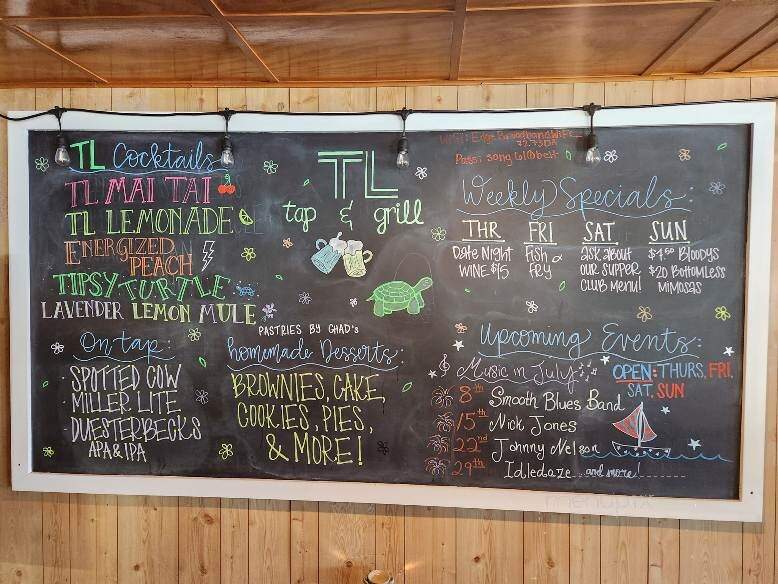 TL Cocktails
TL MAI TAI
TL LEMONADE
ENERGIZED
PEACH
TIPSY TURTLE
LAVENDER LEMON MULE
On tap:
- SPOTTED COW
- MILLER LITE
- DUESTERBECKS
APA & IPA
TL
tap & grill
PASTRIES BY CHAD'S
homemade Desserts:
BROWNIES, CAKE,
COOKIES, PIES,
& MORE!
Pass:
Weekly Specials:
THR FRI SAT SUN
Date Night
WINE $15
fish
FRY
ask about
OUR SUPPER
CLUB MENU!
$4.50 BLOODYS
$20 BOTTOMLESS
MIMOSAS
Upcoming Events:
Music in July
8th Smooth Blues Band
15th Nick Jones
22nd Johnny Nelson
29th Idledaze and more!
OPEN: THURS, FRI,
SAT, SUN